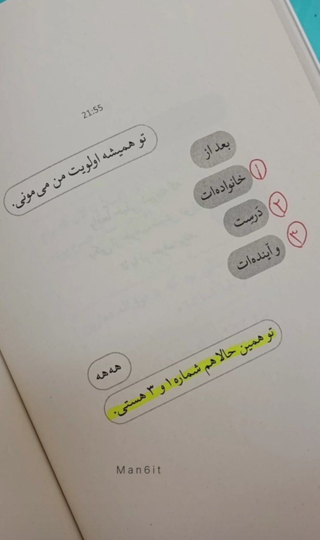 21:55
تو همیشه اولویت من می‌مونی.
بعد از
خانواده‌ات ۱
دَرست ۲
و آینده‌ات ۳
هه‌هه
تو همین حالا هم شماره ۱ و ۳ هستی.
Man6it